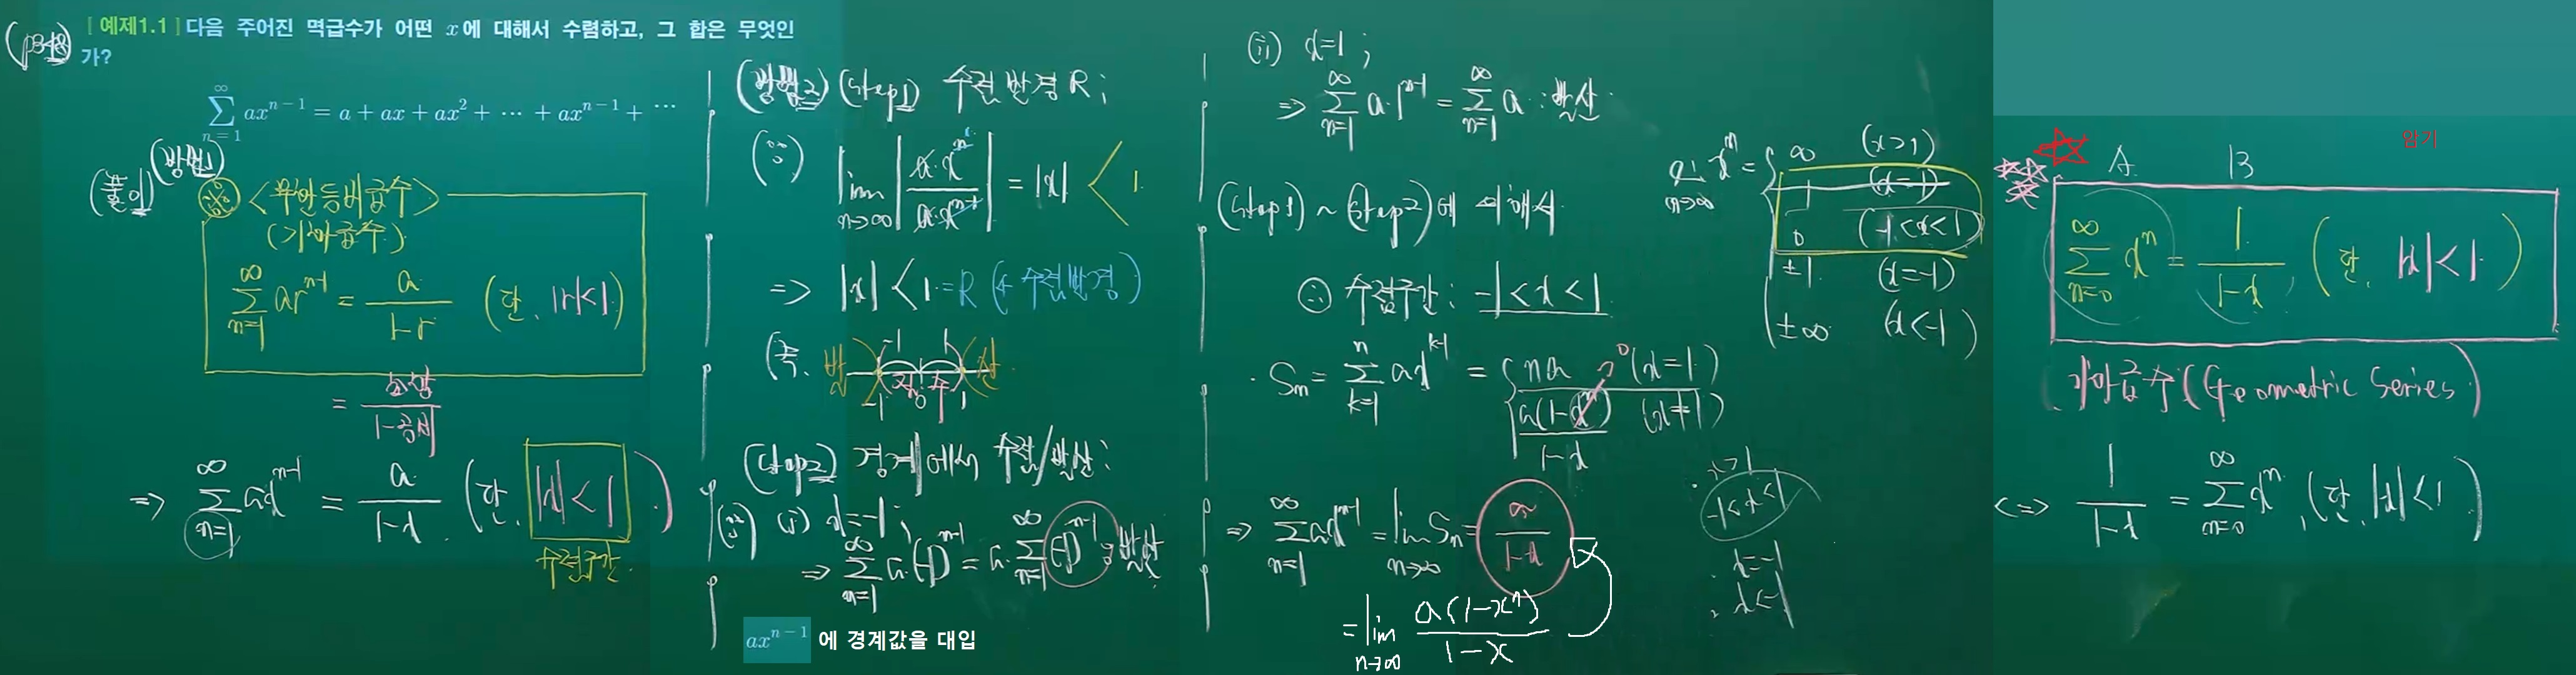 (p348)
[ 예제1.1 ] 다음 주어진 멱급수가 어떤 x에 대해서 수렴하고, 그 합은 무엇인
가?
∑_{n=1}^{∞} ax^{n-1} = a + ax + ax² + ⋯ + ax^{n-1} + ⋯
(풀이) (방법1)
※ <무한등비급수>
(기하급수)
∑_{n=1}^{∞} ar^{n-1} = a/(1-r) (단, |r|<1)
= 초항/(1-공비)
=> ∑_{n=1}^{∞} ax^{n-1} = a/(1-x) (단, |x|<1)
수렴구간
(방법2) (Step1) 수렴반경 R ;
(∵) lim_{n→∞} |a·x^n / a·x^{n-1}| = |x| < 1
=> |x| < 1 = R (← 수렴반경)
(즉, 발 -1 1 산
수렴
-1 0 1
(Step2) 경계에서 수렴/발산 ;
(∵) (i) x=-1 ;
=> ∑_{n=1}^{∞} a·(-1)^{n-1} = a·∑_{n=1}^{∞} (-1)^{n-1} : 발산
ax^{n-1} 에 경계값을 대입
(ii) x=1 ;
=> ∑_{n=1}^{∞} a·1^{n-1} = ∑_{n=1}^{∞} a : 발산
(Step1) ~ (Step2)에 의해서
∴ 수렴구간 : -1 < x < 1
· S_n = ∑_{k=1}^{n} ax^{k-1} = { na (x=1)
a(1-x^n)/(1-x) (x≠1)
0
=> ∑_{n=1}^{∞} ax^{n-1} = lim_{n→∞} S_n = a/(1-x)
= lim_{n→∞} a(1-x^n)/(1-x)
lim_{n→∞} x^n = { ∞ (x>1)
1 (x=1)
0 (-1<x<1)
±1 (x=-1)
±∞ (x<-1)
· x>1
-1<x<1
· x=-1
· x<-1
암기
A B
∑_{n=0}^{∞} x^n = 1/(1-x) (단, |x|<1)
기하급수 (Geometric Series)
<=> 1/(1-x) = ∑_{n=0}^{∞} x^n, (단, |x|<1)